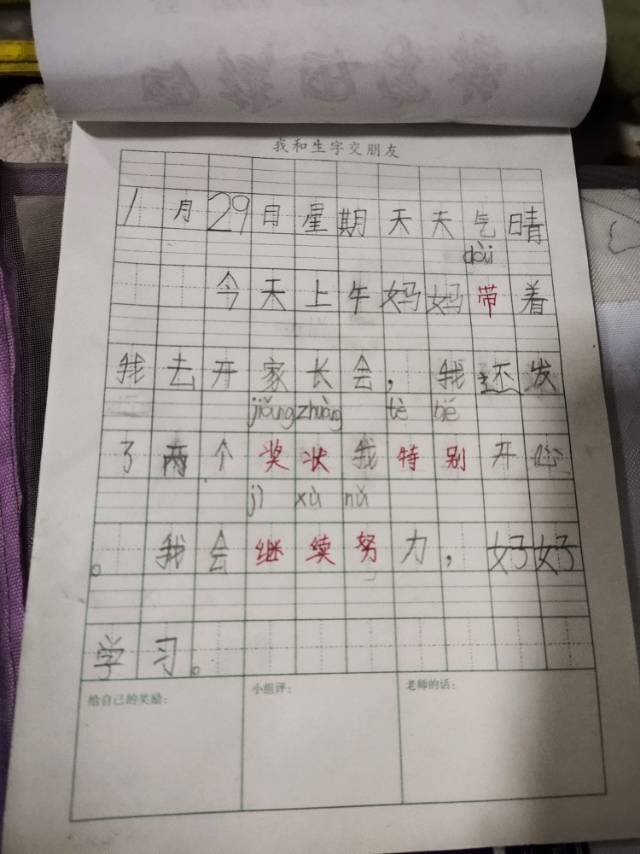 我和生字交朋友
1月29日星期天天气晴
dài
今天上午妈妈带着
我去开家长会，我还发
jiǎng zhuàng tè bé
了两个奖状我特别开心
jì xù nǔ
。我会继续努力，好好
学习。
给自己的奖励： 小组评： 老师的话：